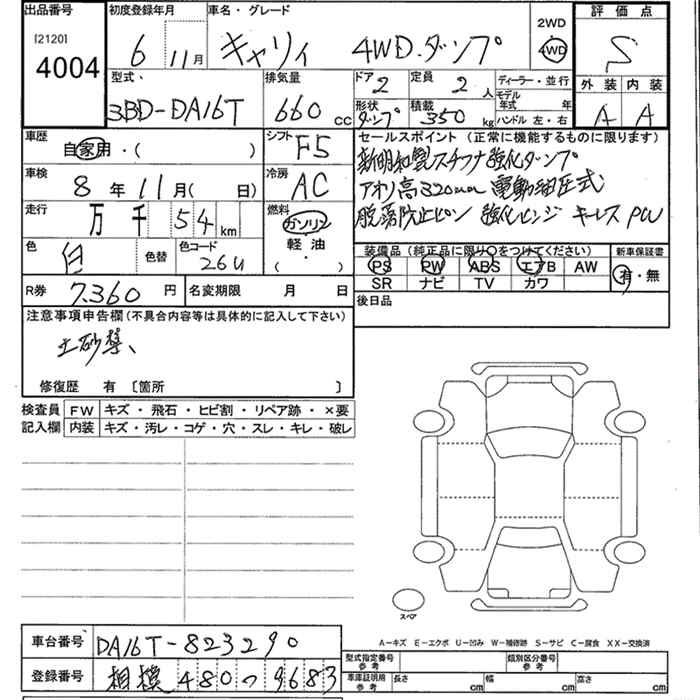 出品番号 初度登録年月 車名・グレード 2WD 評価点
[2120] 4004 6 11月 キャリィ 4WD.ダンプ 4WD S
型式、 排気量 ドア 2 定員 2人 ディーラー・並行 外装 内装
3BD-DA16T 660cc 形状 ダンプ 積載 350kg モデル年式 年 ハンドル 左・右 A A
車歴 自家用・( ) シフト F5 セールスポイント (正常に機能するものに限ります)
車検 8年11月( 日) 冷房 AC 新明和製スチフナ強化ダンプ
アオリ高320mm 電動油圧式
走行 万千54km 燃料 ガソリン 脱落防止ピン 強化ヒンジ キーレス PW
軽油
・( )
色 白 色替 色コード 26U 装備品 (純正品に限り○をつけてください) 新車保証書
PS PW ABS エアB AW 有・無
SR ナビ TV カワ
R券 7,360円 名変期限 月 日 後日品
注意事項申告欄(不具合内容等は具体的に記入して下さい)
土砂禁、
修復歴 有 〔箇所 〕
検査員 FW キズ・飛石・ヒビ割・リペア跡・×要
記入欄 内装 キズ・汚レ・コゲ・穴・スレ・キレ・破レ
スペア
A-キズ E-エクボ U-凹み W-補修跡 S-サビ C-腐食 XX-交換済
車台番号 DA16T-823290 型式指定番号 参考 類別区分番号 参考
登録番号 相模 480つ9683 車庫証明用 参考 長さ cm 幅 cm 高さ cm